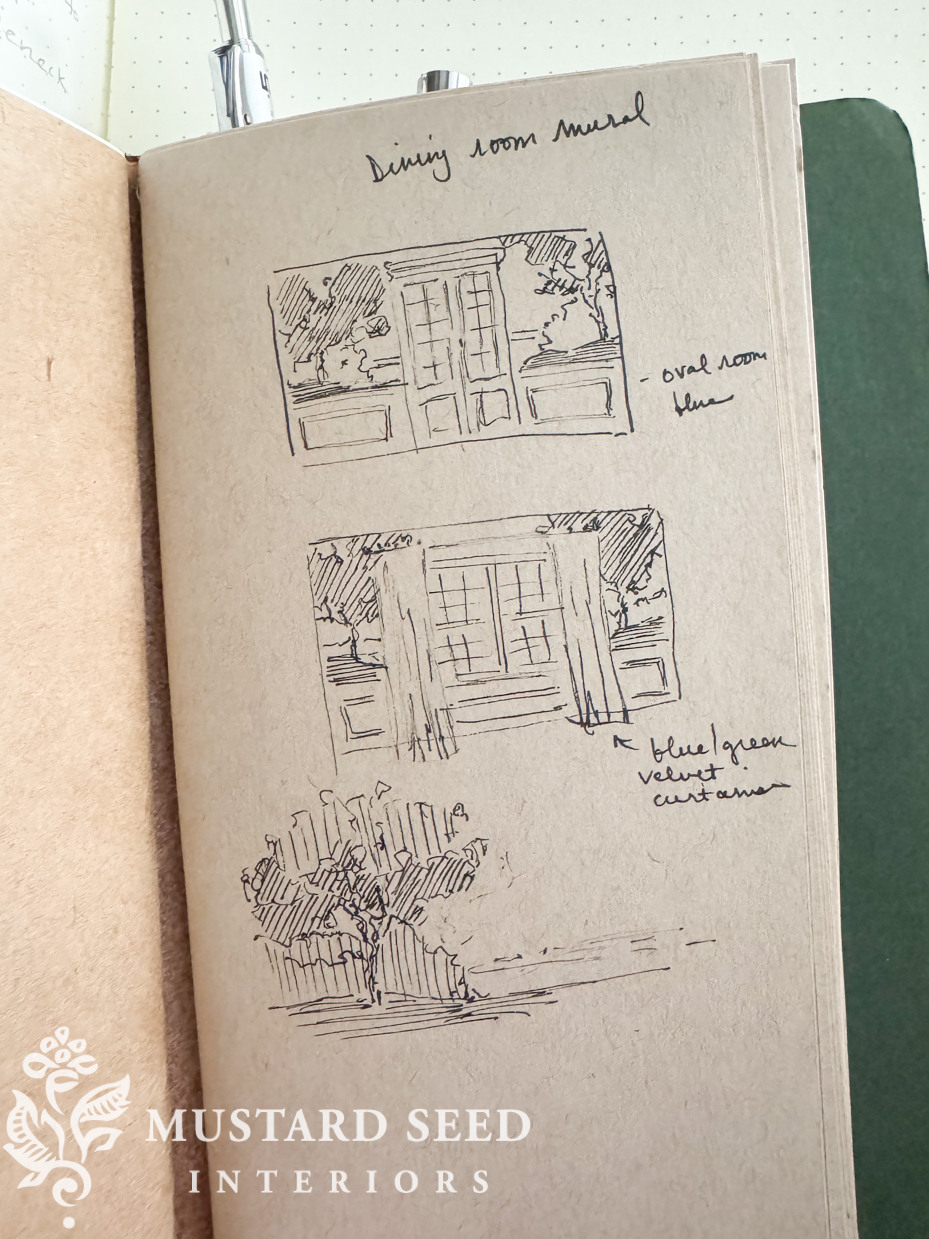 Dining room mural
- oval room
blue
blue/green
velvet
curtains
MUSTARD SEED
INTERIORS